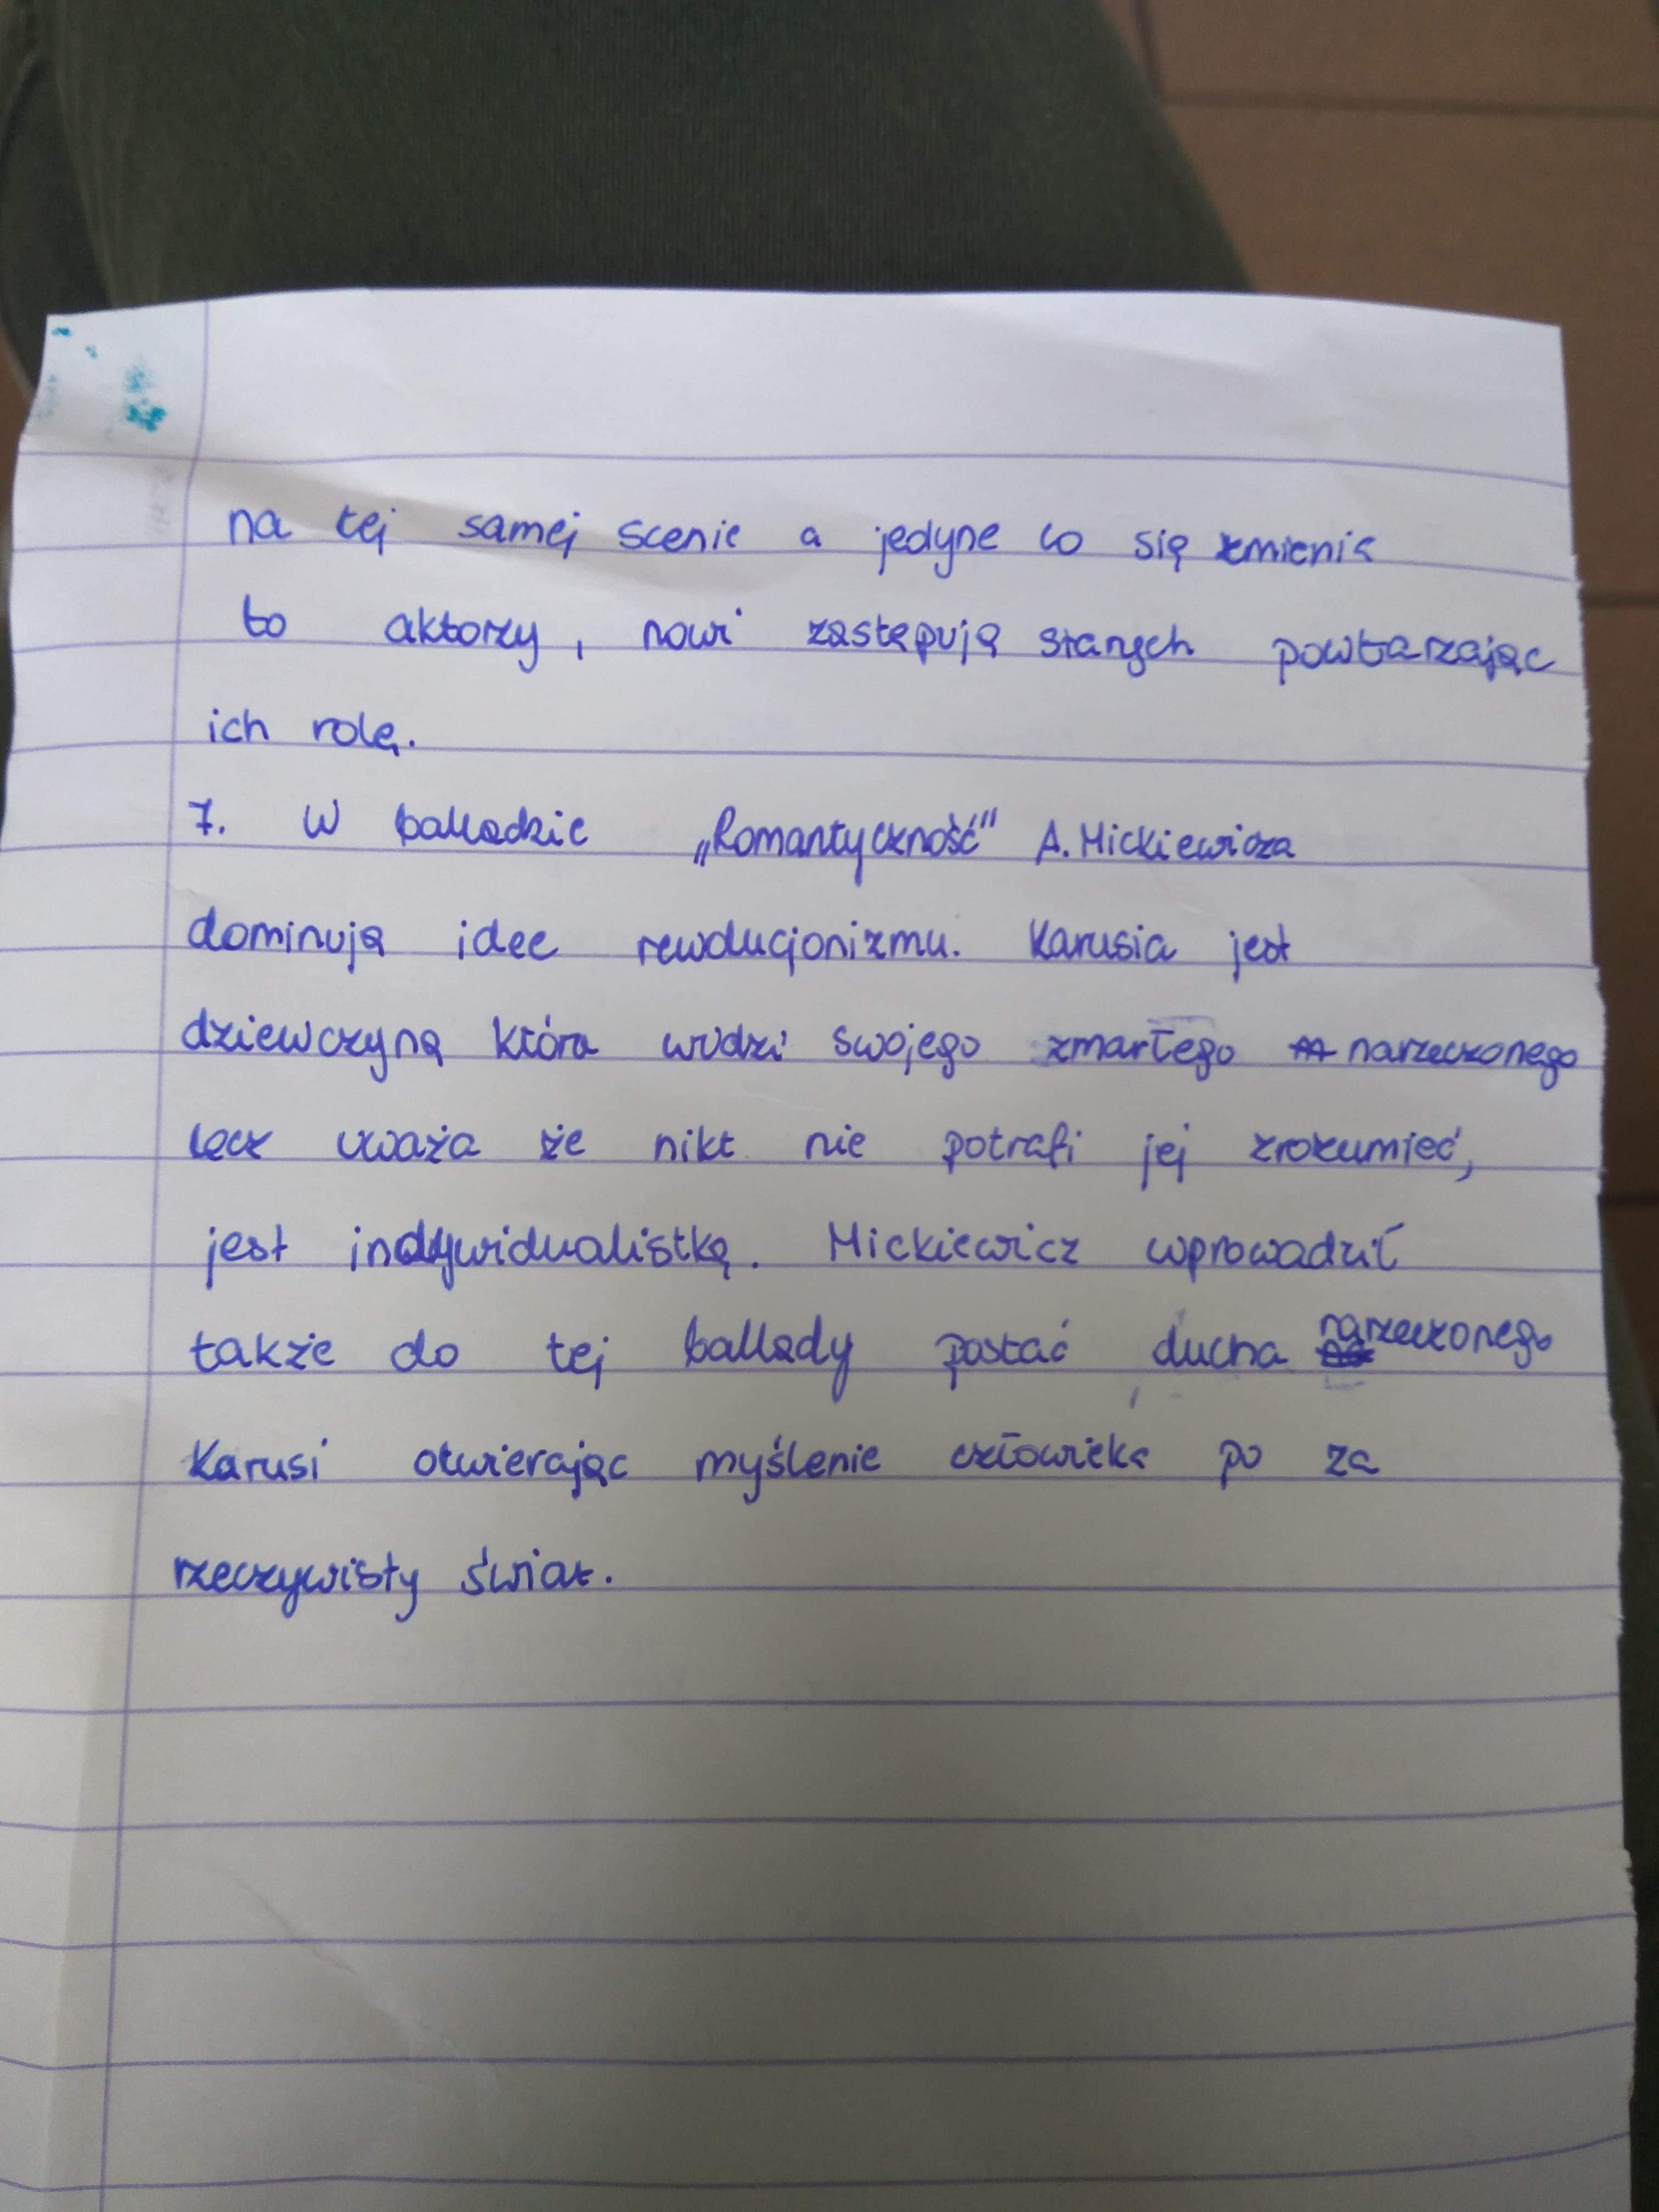 na tej samej scenie a jedyne co się zmienia
to aktorzy, nowi zastępują starych powtarzając
ich rolę.
7. W balladzie „Romantyczność" A. Mickiewicza
dominują idee rewolucjonizmu. Karusia jest
dziewczyną która widzi swojego zmarłego narzeczonego
lecz uważa że nikt nie potrafi jej zrozumieć,
jest indywidualistką. Mickiewicz wprowadził
także do tej ballady postać ducha narzeczonego
Karusi otwierając myślenie człowieka po za
rzeczywisty świat.